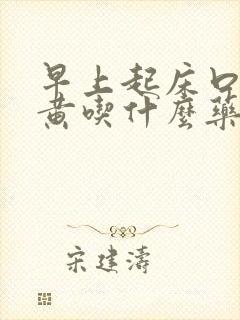 早上起床口
黄喫什麼藥
宋建濤